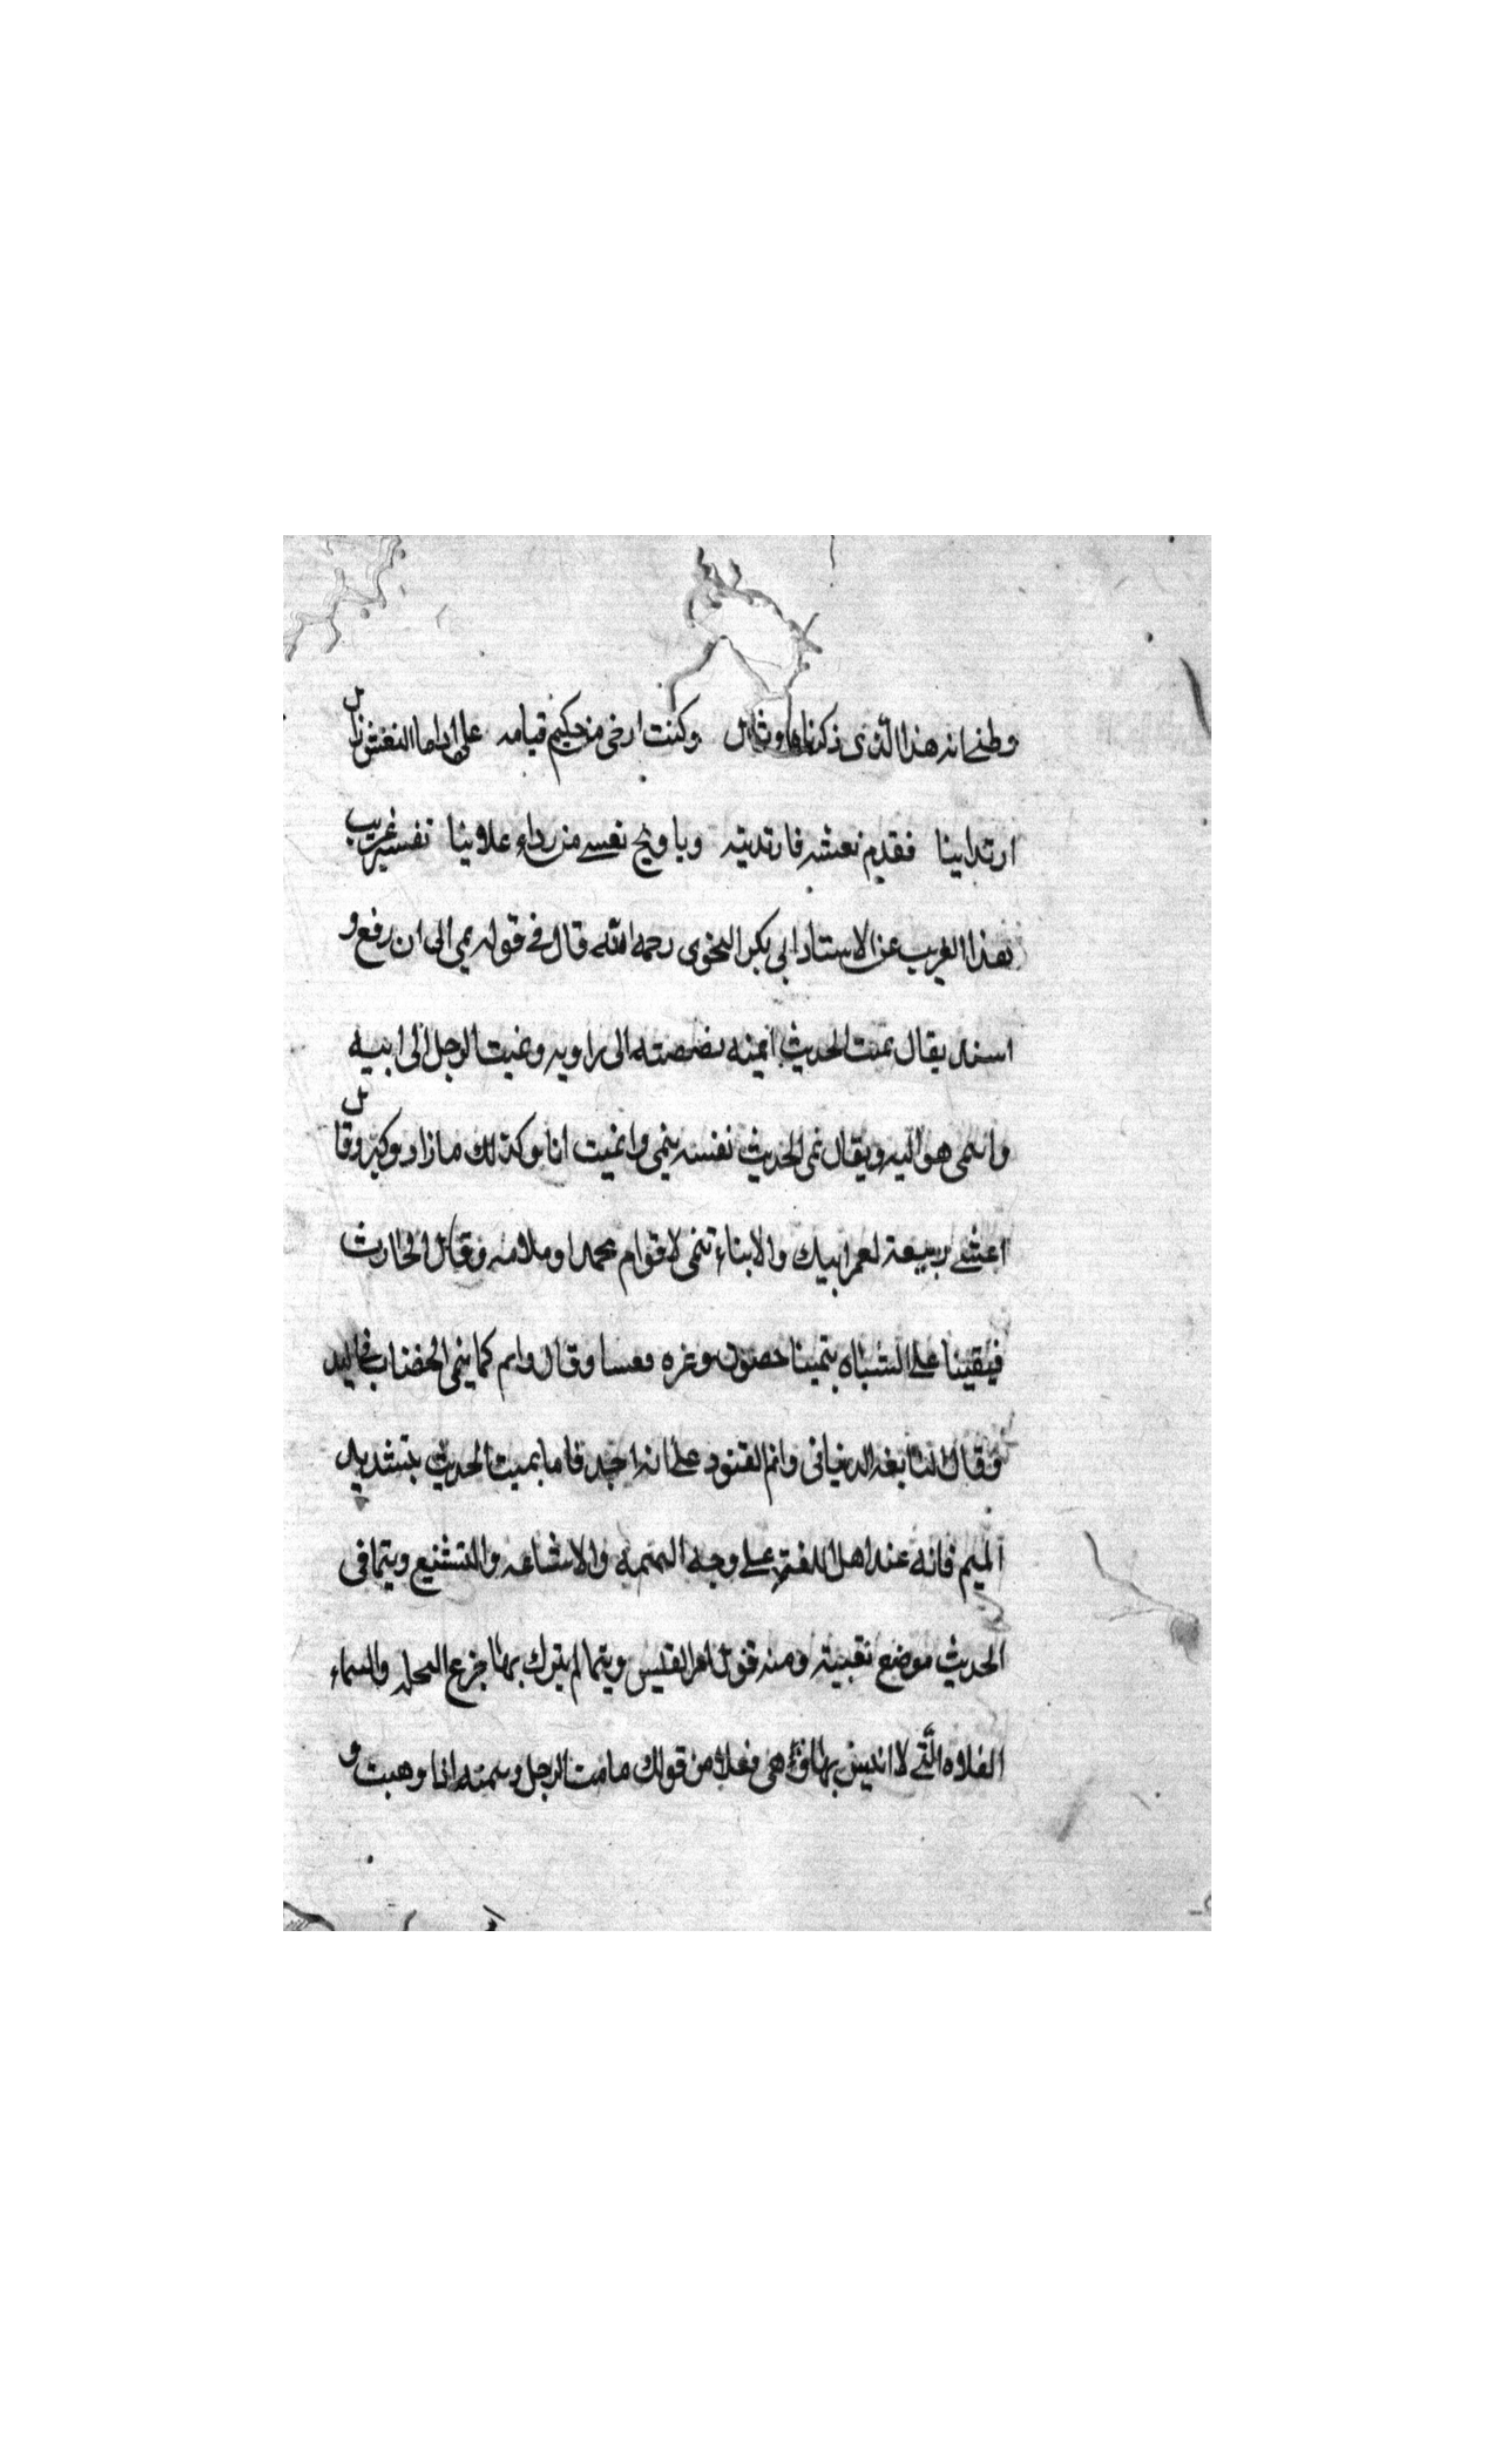 وطني انه هذا الذى ذكرناه وقال وكنت ارخى من حكيم قيامه على اذا ما النعش زل
ارتدابينا فقدم نعشه فارتديته ويا ويح نفسى من رداء علانيا تفسير غريب
هذا الغريب عن الاستاد ابى بكر النحوى رحمه الله قال فى قوله يمى الى ان رفع و
اسند يقال نميت الحديث انميه نصصته الى راويه ونميت الرجل الى ابيه
وانتمى هو اليه ويقال نمى الحديث نفسه ينمى وانميت انا وكذلك ما زاد وكبر وقال
اعشى ربيعة لعمر ابيك والابناء تنمى لاقوام محمدا وملامه وقال الحارث
فبقينا على الشناه بتمينا حصون وغره فعسا وقال وانم كما ينمى الخضاب فى اليد
وقال النابغه الدنيانى وانم القتود على انه اجد فاما نميت الحديث بتشديد
الميم فانه عند اهل اللغة على وجه النميمه والاشاعه والتشنيع ويتما فى
الحديث موضع نقبية ومنه قول امر القيس ويتما لم يترك بها جزع النحله والسماء
الفلاه التى لا انيس بها وهى فعلا من قولك مامت الرجل وسمته انا وهبت و